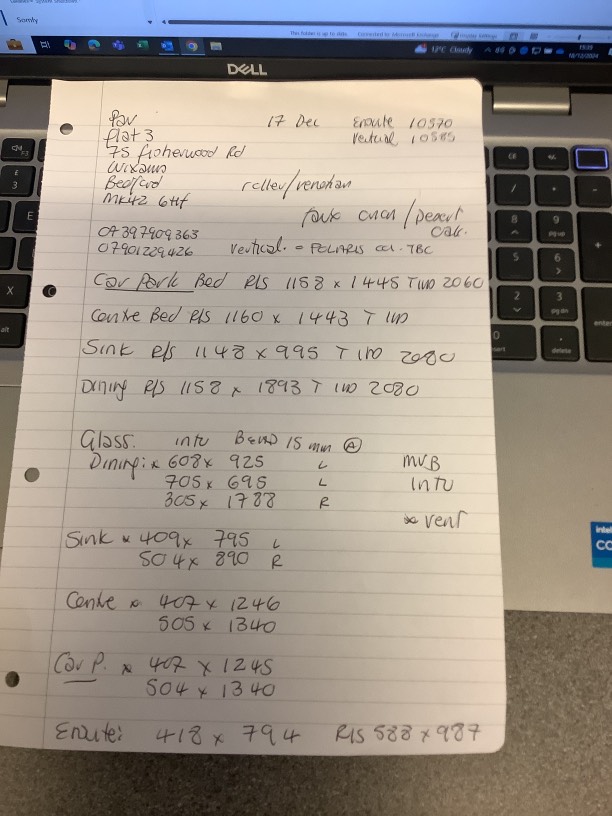 Somfy
This folder is up to date. Connected to Microsoft Exchange Display Settings
12°C Cloudy
15:39
18/12/2024
DELL
Pav 17 Dec Enroute 10570
Flat 3 Vertical 10585
75 Fisherwood Rd
Wixams
Bedford roller/venetian
MK42 6
07397909363
07901229426 Vertical. = POLARIS TBC
Car Park Bed R/S 1158 x 1445 T IND 2060
Centre Bed R/S 1160 x 1443 T IND
Sink R/S 1148 x 995 T IND 2080
Dining R/S 1158 x 1893 T IND 2080
Glass. intu Bead 15 mm A
Dining: x 608 x 925 L MVB
705 x 695 L Intu
305 x 1788 R
x vent
Sink x 409 x 795 L
504 x 890 R
Centre x 407 x 1246
505 x 1340
Car P. x 407 x 1245
504 x 1340
Ensuite: 418 x 794 R/S 588 x 987